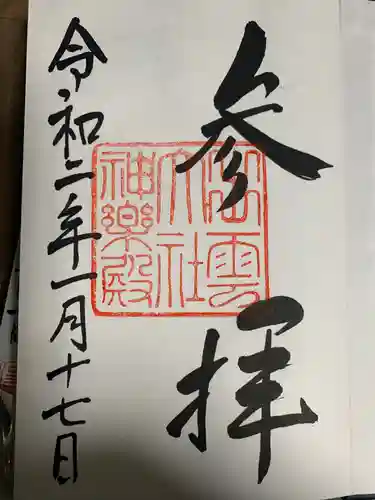 参拝
出雲
大社
神楽殿
令和二年一月十七日